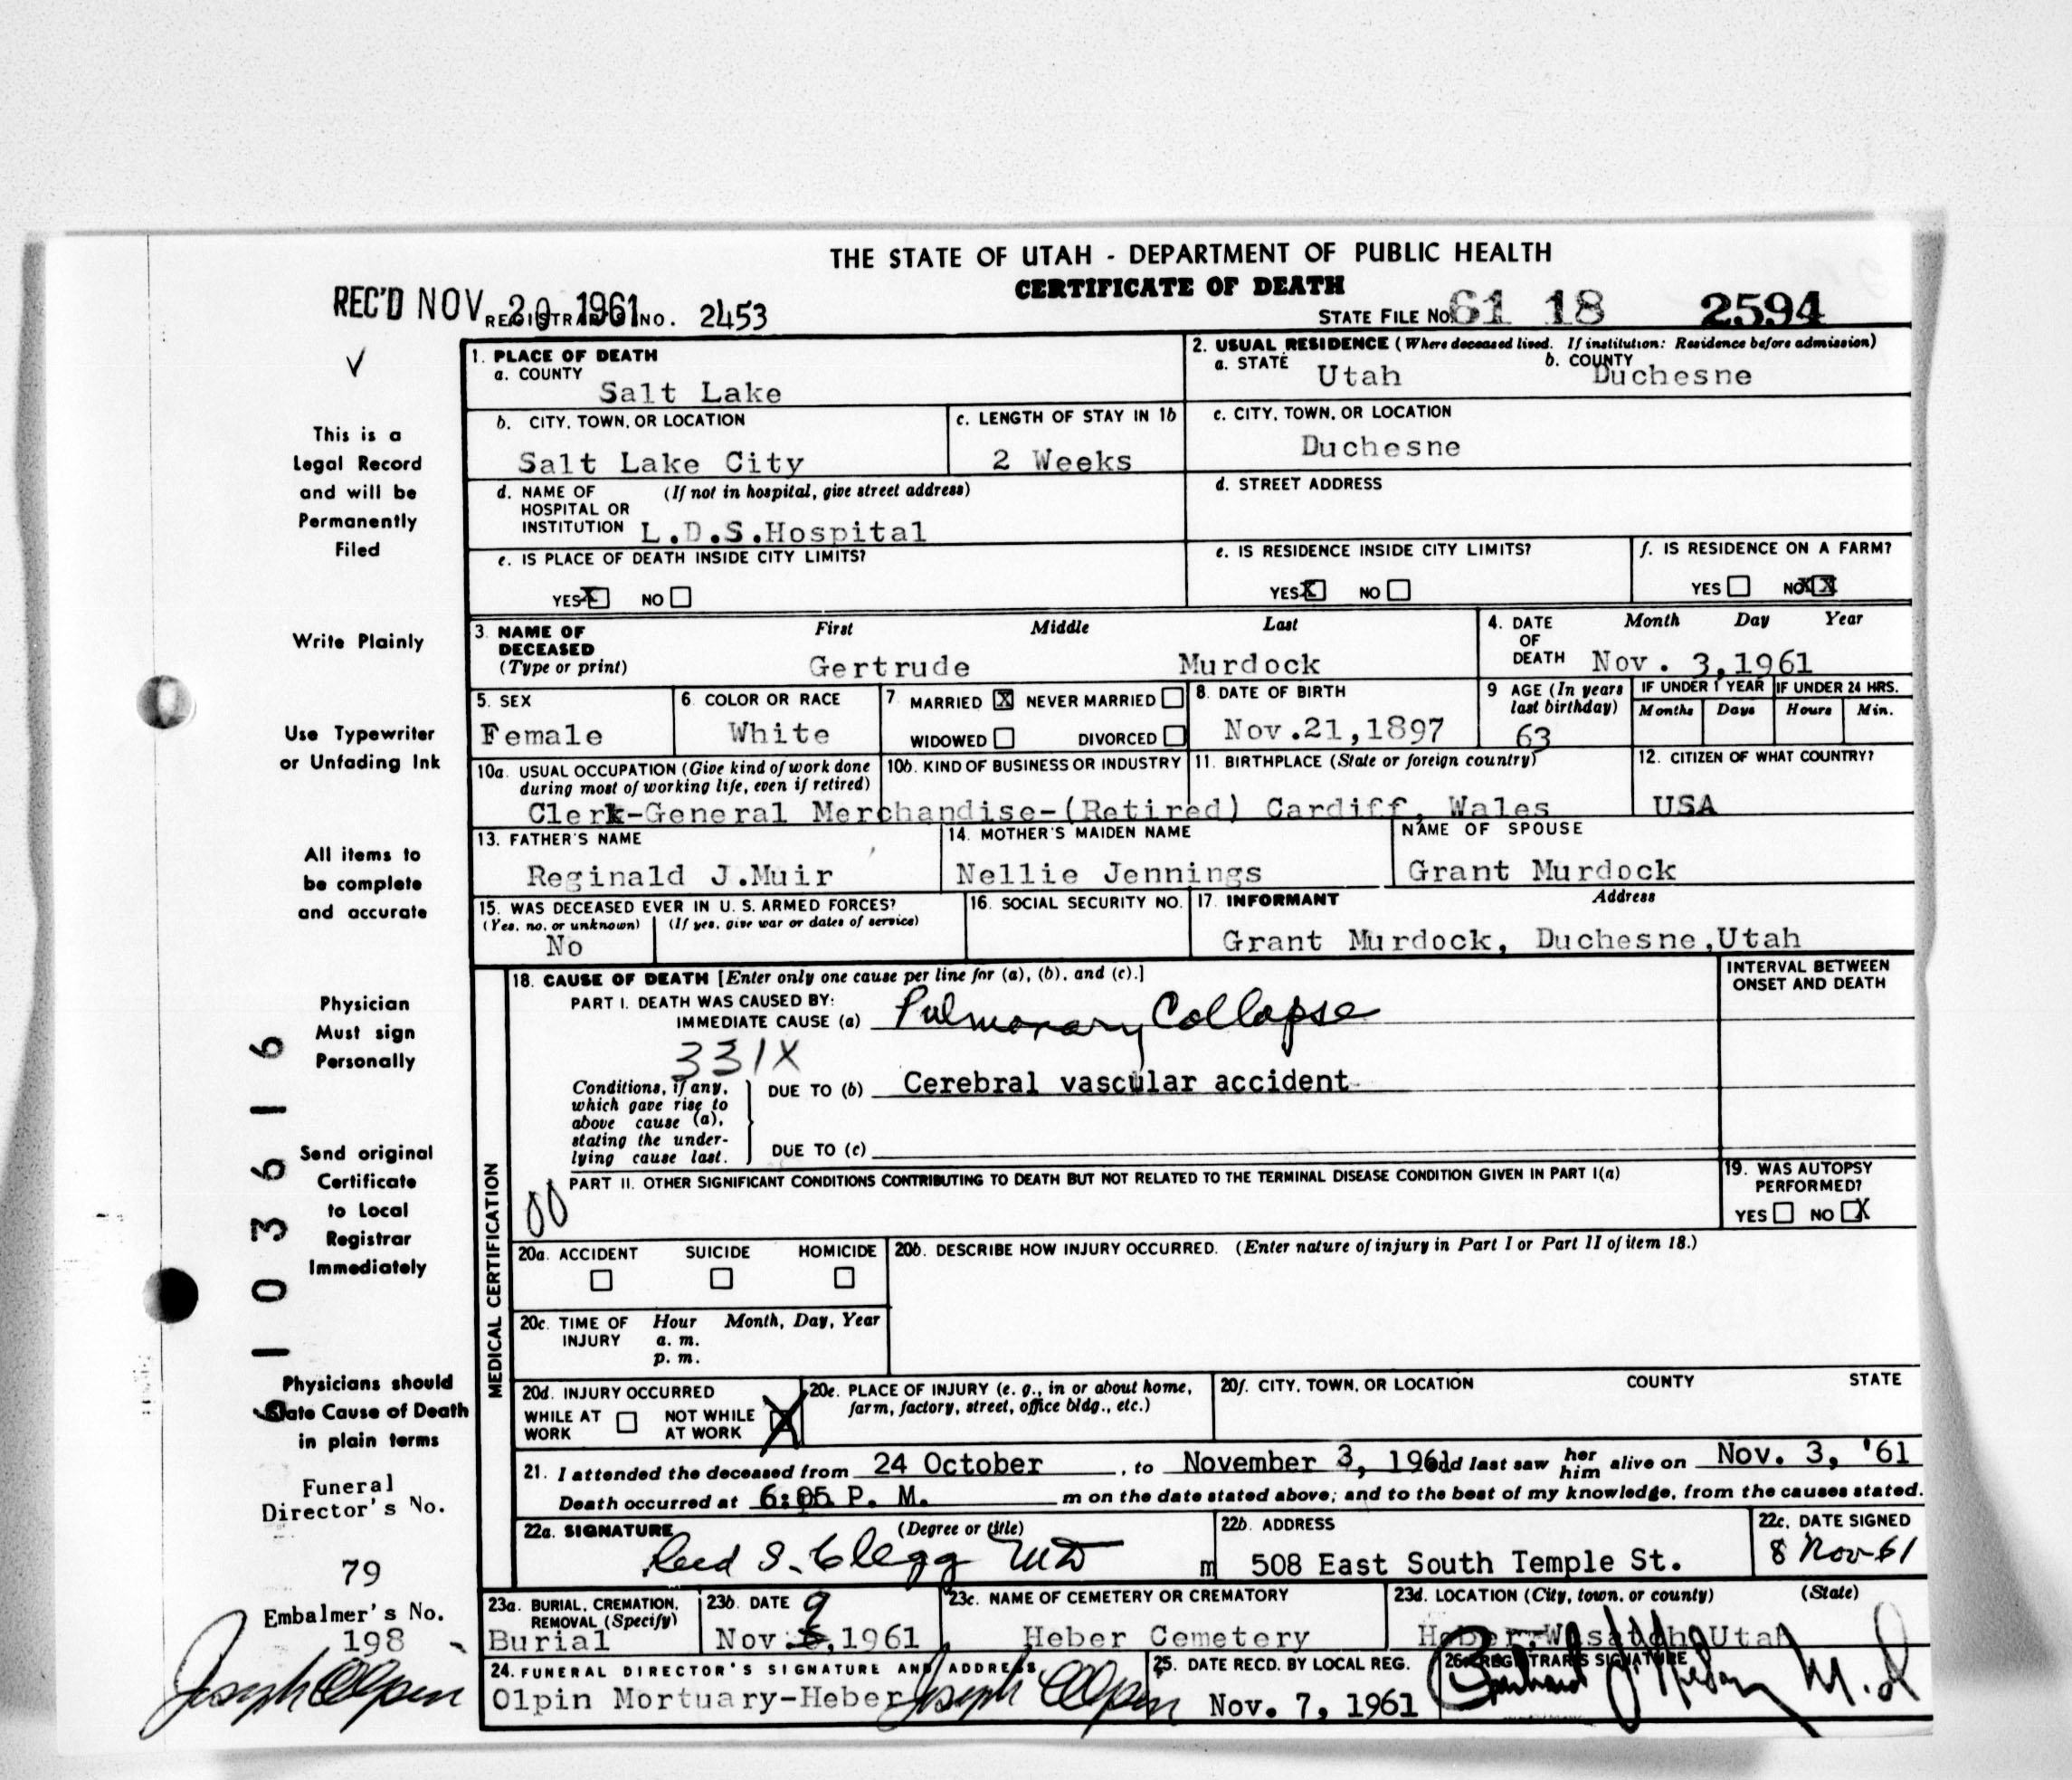 THE STATE OF UTAH - DEPARTMENT OF PUBLIC HEALTH
CERTIFICATE OF DEATH
REC'D NOV 20 1961 REGISTRAR'S NO. 2453
STATE FILE NO. 61 18 2594
1. PLACE OF DEATH
a. COUNTY
Salt Lake
2. USUAL RESIDENCE (Where deceased lived. If institution: Residence before admission)
a. STATE Utah b. COUNTY Duchesne
b. CITY, TOWN, OR LOCATION
Salt Lake City
c. LENGTH OF STAY IN 1b
2 Weeks
c. CITY, TOWN, OR LOCATION
Duchesne
d. NAME OF HOSPITAL OR INSTITUTION (If not in hospital, give street address)
L.D.S.Hospital
d. STREET ADDRESS
e. IS PLACE OF DEATH INSIDE CITY LIMITS?
YES X NO
e. IS RESIDENCE INSIDE CITY LIMITS?
YES X NO
f. IS RESIDENCE ON A FARM?
YES NO X X
3. NAME OF DECEASED (Type or print)
First Middle Last
Gertrude Murdock
4. DATE OF DEATH Month Day Year
Nov. 3,1961
5. SEX
Female
6. COLOR OR RACE
White
7. MARRIED X NEVER MARRIED
WIDOWED DIVORCED
8. DATE OF BIRTH
Nov.21,1897
9 AGE (In years last birthday)
63
IF UNDER 1 YEAR IF UNDER 24 HRS.
Months Days Hours Min.
10a. USUAL OCCUPATION (Give kind of work done during most of working life, even if retired)
10b. KIND OF BUSINESS OR INDUSTRY
Clerk-General Merchandise-(Retired)
11. BIRTHPLACE (State or foreign country)
Cardiff, Wales
12. CITIZEN OF WHAT COUNTRY?
USA
13. FATHER'S NAME
Reginald J.Muir
14. MOTHER'S MAIDEN NAME
Nellie Jennings
NAME OF SPOUSE
Grant Murdock
15. WAS DECEASED EVER IN U. S. ARMED FORCES?
(Yes, no, or unknown) (If yes, give war or dates of service)
No
16. SOCIAL SECURITY NO.
17. INFORMANT Address
Grant Murdock, Duchesne,Utah
MEDICAL CERTIFICATION
18. CAUSE OF DEATH [Enter only one cause per line for (a), (b), and (c).]
INTERVAL BETWEEN ONSET AND DEATH
PART I. DEATH WAS CAUSED BY:
IMMEDIATE CAUSE (a) Pulmonary Collapse
331X
Conditions, if any, which gave rise to above cause (a), stating the underlying cause last.
DUE TO (b) Cerebral vascular accident
DUE TO (c)
PART II. OTHER SIGNIFICANT CONDITIONS CONTRIBUTING TO DEATH BUT NOT RELATED TO THE TERMINAL DISEASE CONDITION GIVEN IN PART I(a)
00
19. WAS AUTOPSY PERFORMED?
YES NO X
20a. ACCIDENT SUICIDE HOMICIDE
20b. DESCRIBE HOW INJURY OCCURRED. (Enter nature of injury in Part I or Part II of item 18.)
20c. TIME OF INJURY Hour Month, Day, Year
a. m.
p. m.
20d. INJURY OCCURRED
WHILE AT WORK NOT WHILE AT WORK X
20e. PLACE OF INJURY (e. g., in or about home, farm, factory, street, office bldg., etc.)
20f. CITY, TOWN, OR LOCATION COUNTY STATE
21. I attended the deceased from 24 October , to November 3, 1961 and last saw her him alive on Nov. 3, '61
Death occurred at 6:05 P. M. m on the date stated above; and to the best of my knowledge, from the causes stated.
22a. SIGNATURE (Degree or title)
Reed S. Clegg MD m
22b. ADDRESS
508 East South Temple St.
22c. DATE SIGNED
8 Nov-61
23a. BURIAL, CREMATION, REMOVAL (Specify)
Burial
23b. DATE 9
Nov. ,1961
23c. NAME OF CEMETERY OR CREMATORY
Heber Cemetery
23d. LOCATION (City, town, or county) (State)
Heber,Wasatch,Utah
24. FUNERAL DIRECTOR'S SIGNATURE AND ADDRESS
Olpin Mortuary-Heber Joseph Olpin
25. DATE RECD. BY LOCAL REG.
Nov. 7, 1961
26. REGISTRAR'S SIGNATURE
M.d
✓
This is a
Legal Record
and will be
Permanently
Filed
Write Plainly
Use Typewriter
or Unfading Ink
All items to
be complete
and accurate
Physician
Must sign
Personally
Send original
Certificate
to Local
Registrar
Immediately
Physicians should
State Cause of Death
in plain terms
Funeral
Director's No.
79
Embalmer's No.
198
Joseph Olpin
103616